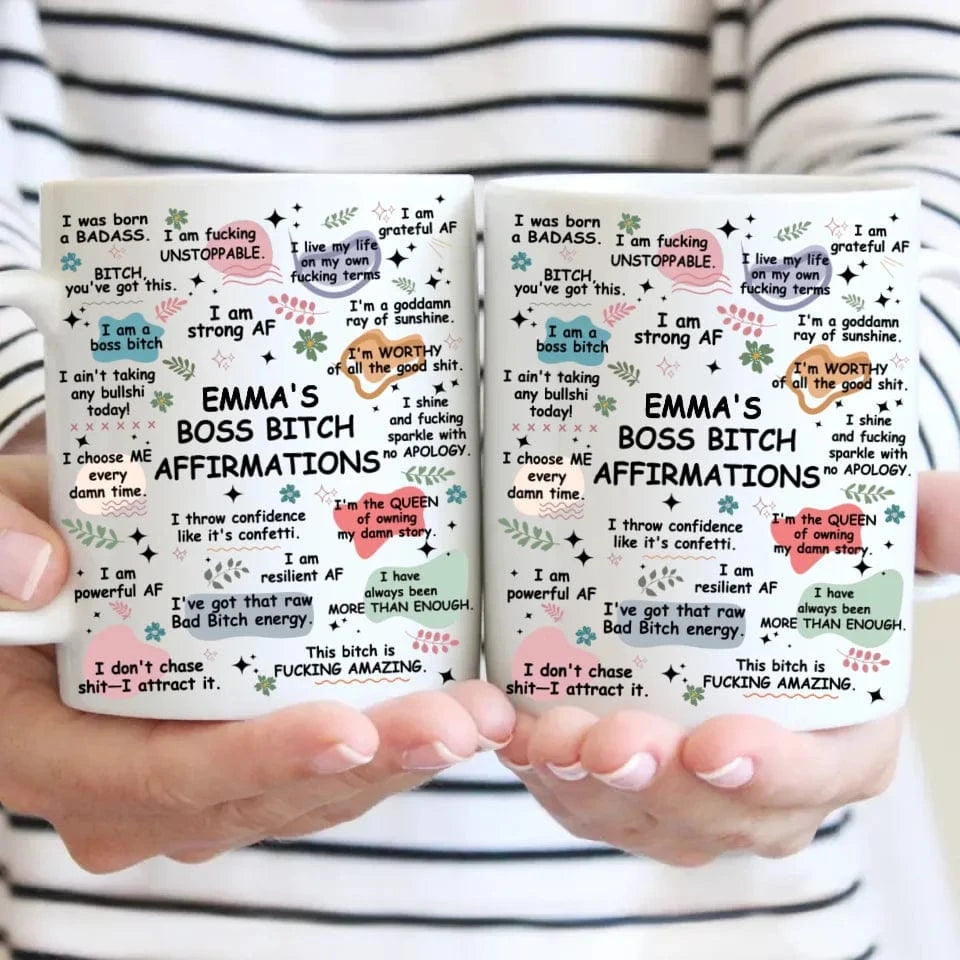 I was born
a BADASS.
I am fucking
UNSTOPPABLE.
I live my life
on my own
fucking terms
I am
grateful AF
BITCH,
you've got this.
I am a
boss bitch
I am
strong AF
I'm a goddamn
ray of sunshine.
I'm WORTHY
of all the good shit.
I ain't taking
any bullshi
today!
EMMA'S
BOSS BITCH
AFFIRMATIONS
I shine
and fucking
sparkle with
no APOLOGY.
I choose ME
every
damn time.
I throw confidence
like it's confetti.
I'm the QUEEN
of owning
my damn story.
I am
powerful AF
I am
resilient AF
I've got that raw
Bad Bitch energy.
I have
always been
MORE THAN ENOUGH.
I don't chase
shit—I attract it.
This bitch is
FUCKING AMAZING.
I was born
a BADASS.
I am fucking
UNSTOPPABLE.
I live my life
on my own
fucking terms
I am
grateful AF
BITCH,
you've got this.
I am a
boss bitch
I am
strong AF
I'm a goddamn
ray of sunshine.
I'm WORTHY
of all the good shit.
I ain't taking
any bullshi
today!
EMMA'S
BOSS BITCH
AFFIRMATIONS
I shine
and fucking
sparkle with
no APOLOGY.
I choose ME
every
damn time.
I throw confidence
like it's confetti.
I'm the QUEEN
of owning
my damn story.
I am
powerful AF
I am
resilient AF
I've got that raw
Bad Bitch energy.
I have
always been
MORE THAN ENOUGH.
I don't chase
shit—I attract it.
This bitch is
FUCKING AMAZING.